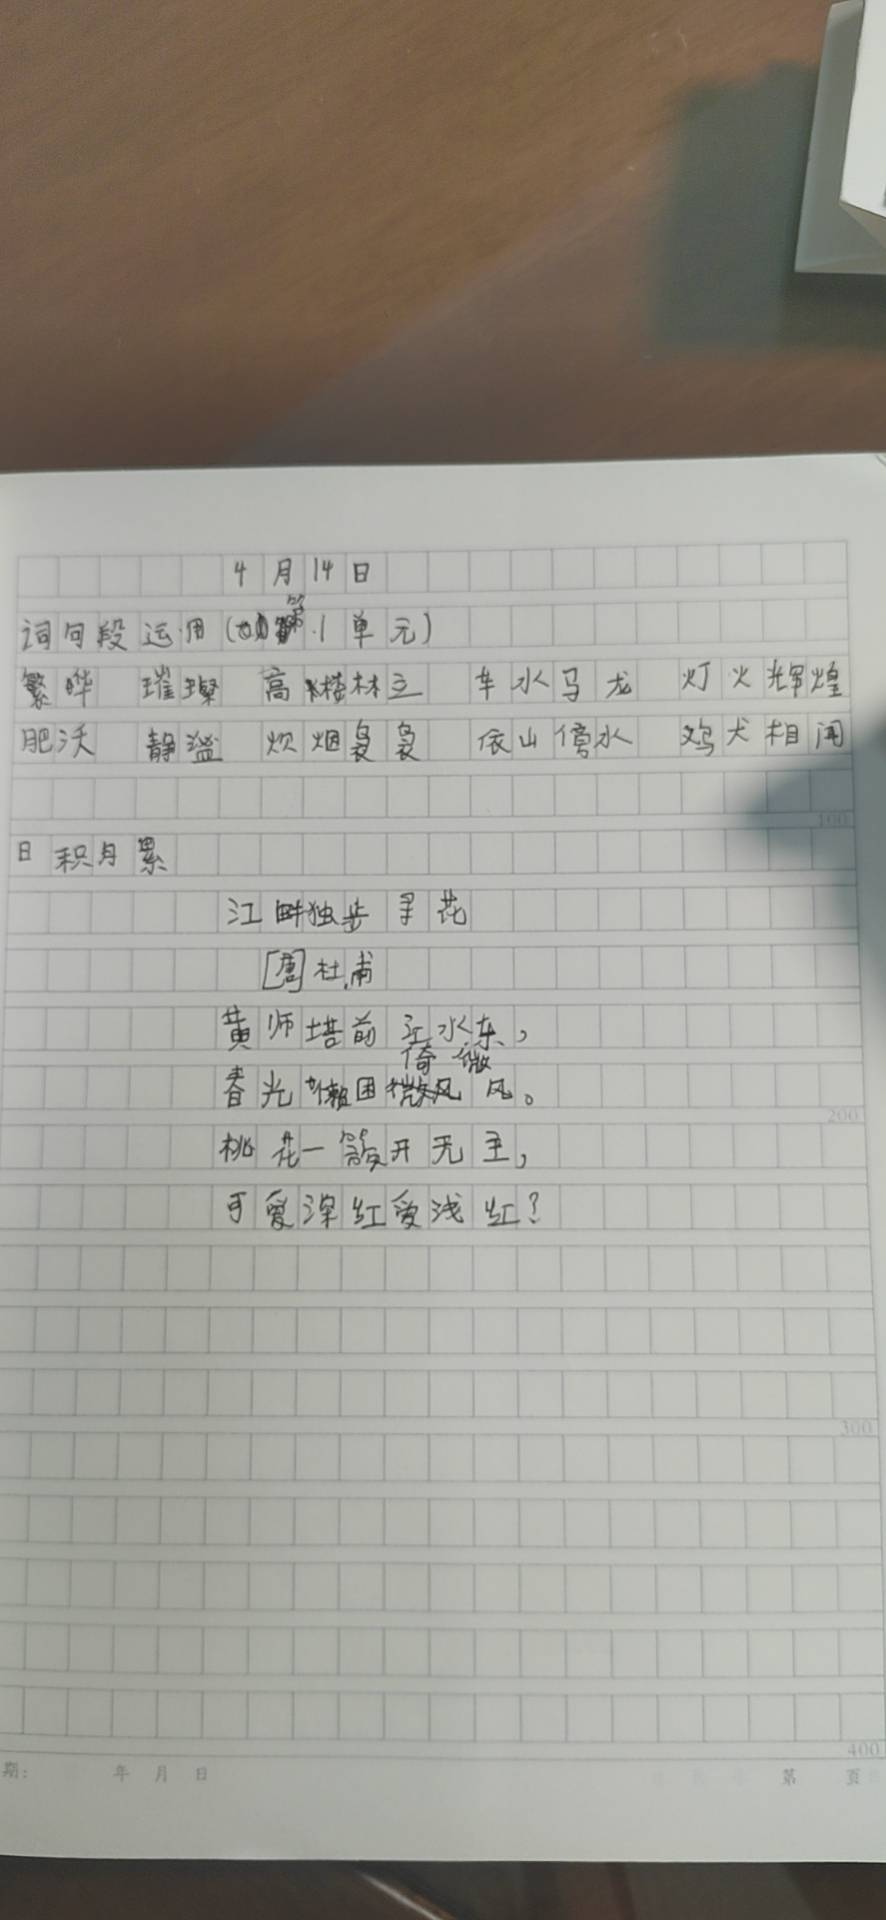 4月14日
词句段运用(第1单元)
繁晔 璀璨 高楼林立 车水马龙 灯火辉煌
肥沃 静谧 炊烟袅袅 依山傍水 鸡犬相闻
100
日积月累
江畔独步寻花
[唐]杜甫
黄师塔前江水东,
倚 微
春光懒困 风。
200
桃花一簇开无主,
可爱深红爱浅红?
300
400
期: 年 月 日 第 页